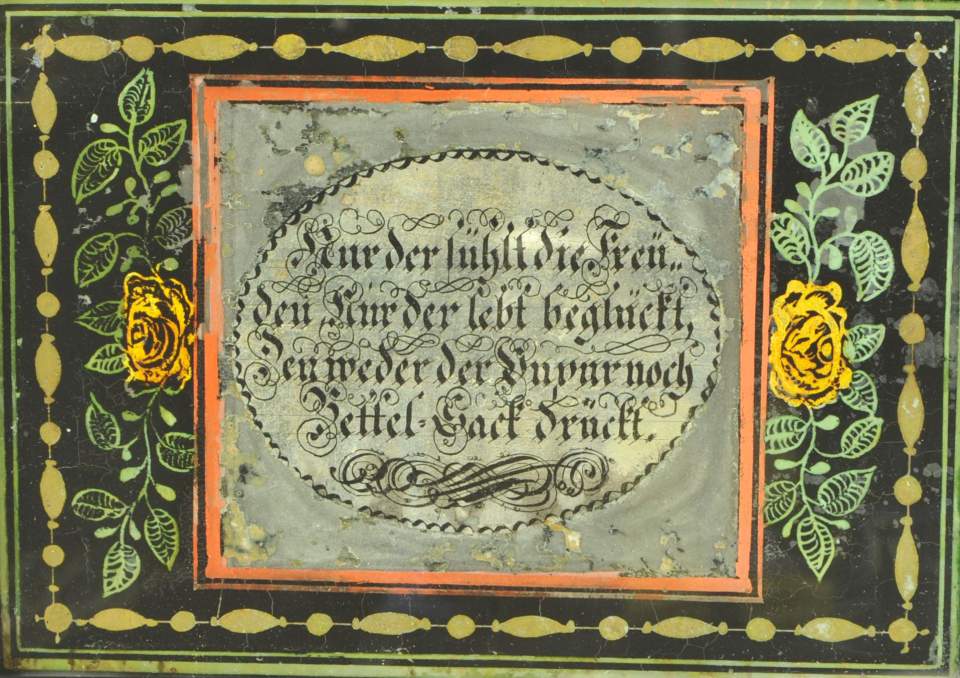 Nur der fühlt die Freü⸗
den, Nur der lebt beglückt,
Den weder der Purpur noch
Bettel-Sack drückt.